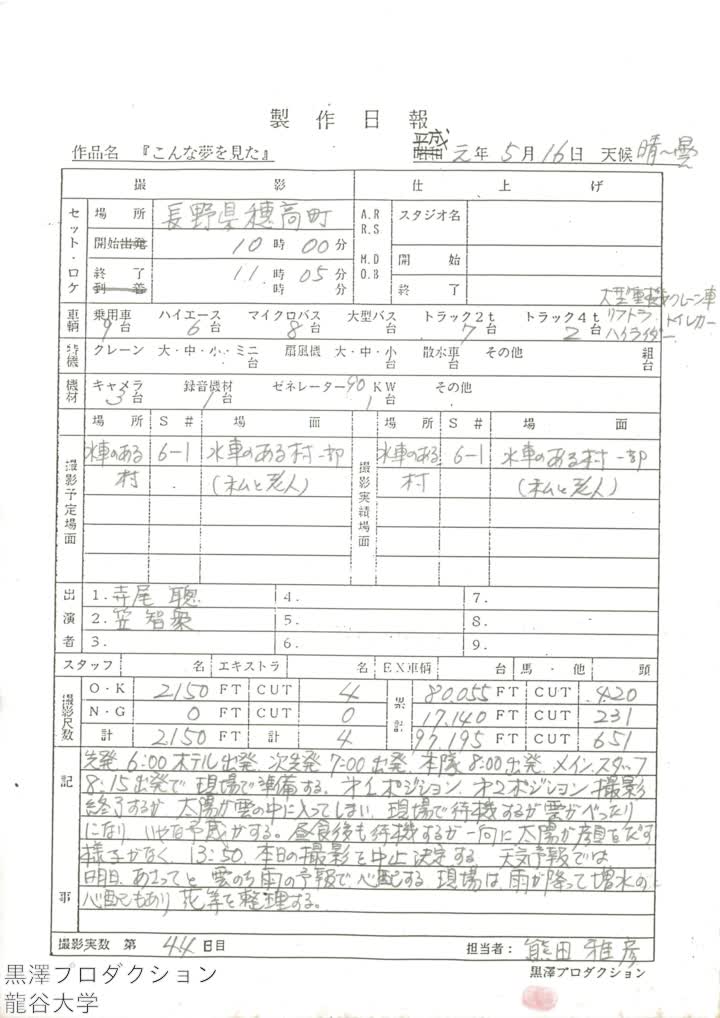 製作日報
作品名 『こんな夢を見た』 昭和 平成 元年 5月 16日 天候 晴〜曇
撮影 仕上げ
セット・ロケ 場所 長野県穂高町 A.R R.S スタジオ名
開始出発 10時00分
M.D O.B 開始
終了 11時05分
到着 時 分 終了
大型重機クレーン車
リフトラ. トイレカー
ハイライダー
車輌 乗用車 ハイエース マイクロバス 大型バス トラック2t トラック4t
9台 6台 8台 台 7台 2台
特機 クレーン 大・中・小・ミニ 台 扇風機 大・中・小 台 散水車 台 その他 組 台
機材 キャメラ 録音機材 ゼネレーター 90KW その他
3台 1台 1台
場所 S# 場面 場所 S# 場面
撮影予定場面 水車のある 6-1 水車のある村 一部 撮影実績場面 水車のある 6-1 水車のある村 一部
村 (私と老人) 村 (私と老人)
出演者 1. 寺尾 聰 4. 7.
2. 笠 智衆 5. 8.
3. 6. 9.
スタッフ 名 エキストラ 名 EX車輌 台 馬・他 頭
撮影尺数 O・K 2150 FT CUT 4 累計 80,055 FT CUT 420
N・G 0 FT CUT 0 17,140 FT CUT 231
計 2150 FT 計 4 97,195 FT CUT 651
記事
先発 6:00 ホテル出発. 次先発 7:00 出発. 本隊 8:00 出発. メインスタッフ
8:15 出発で 現場で準備する. オ1ポジション. オ2ポジション 撮影
終了するが 太陽が雲の中に入ってしまい. 現場で待機するが雲がべったり
になり. いやな予感がする。昼食後も待機するが一向に太陽が顔をだす
様子がなく. 13:50. 本日の撮影を中止決定する. 天気予報では
明日. あさってと 雲のち雨の予報で心配する 現場は. 雨が降って増水の
心配もあり 花等を整理する。
撮影実数 第 44 日目 担当者: 熊田雅彦
黒澤プロダクション
黒澤プロダクション
龍谷大学